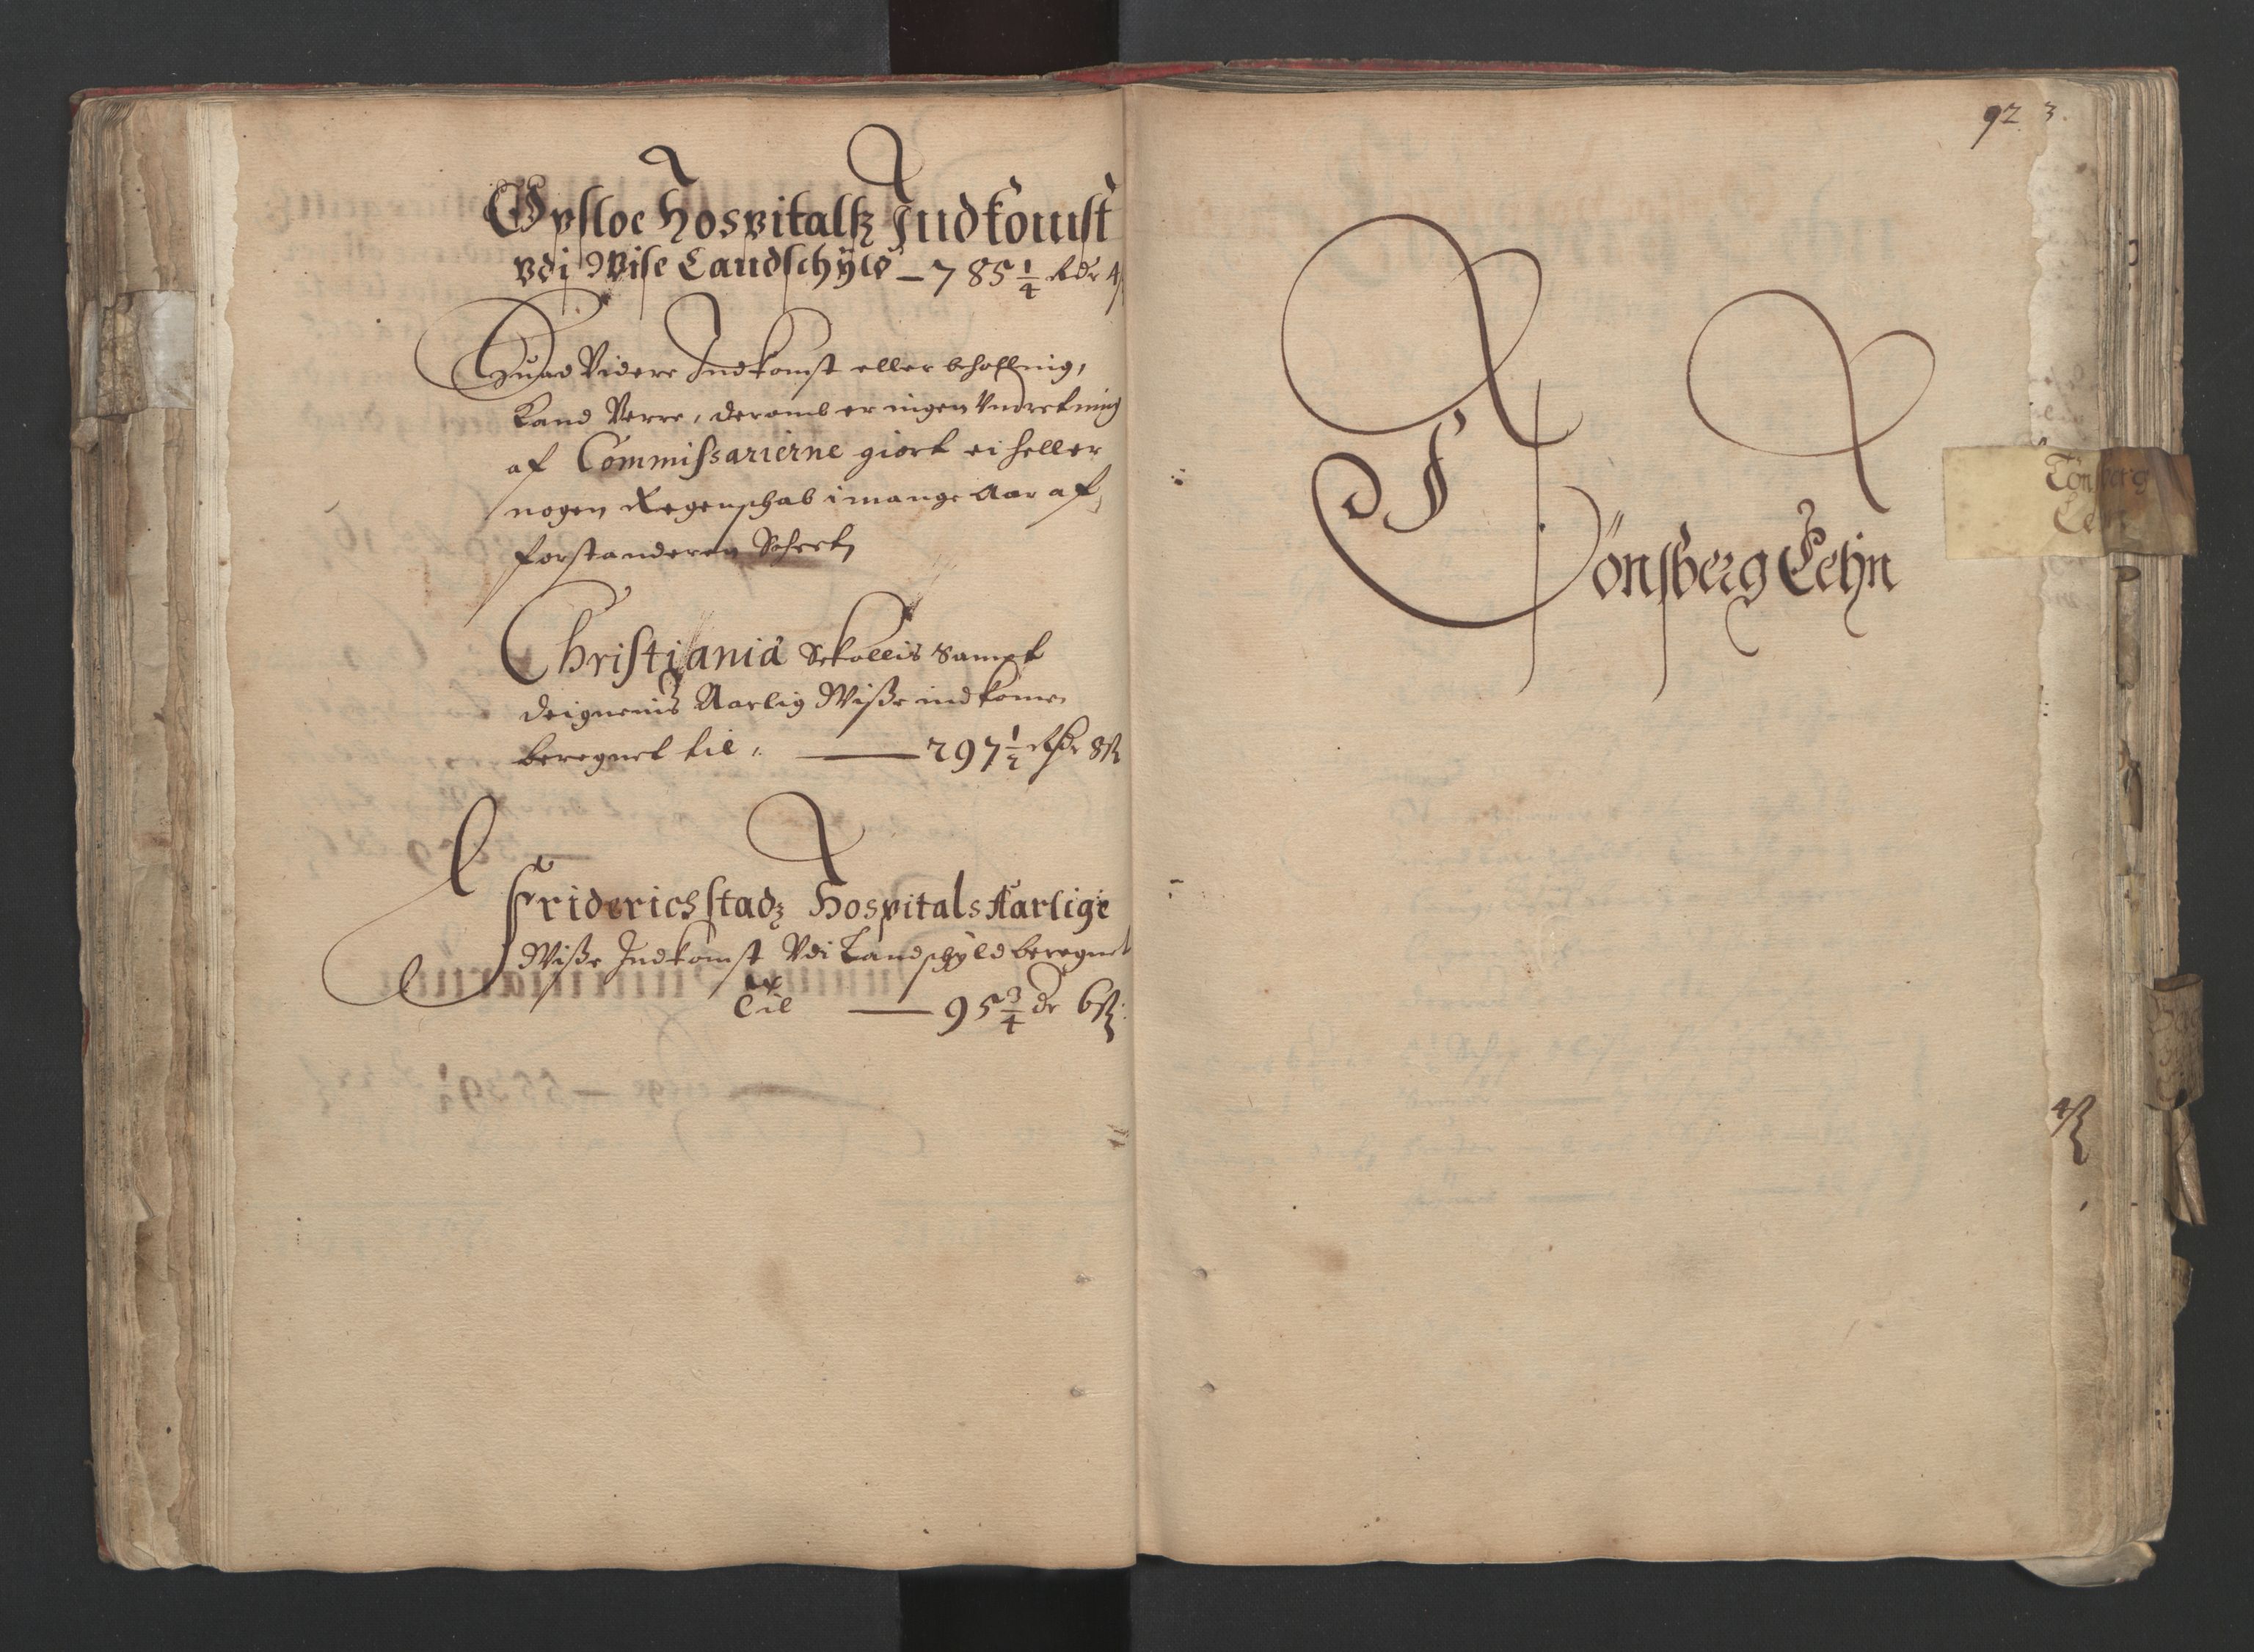 Opsloe Hospitalsz Indkomst
vdj Wise Landschÿld – 785 1/4 Rdr 4 ß
Huad Videre Indkomst eller behollning,
kand Verre, deromb er ingen Vndretning
af Commissarierne giort ei heller
nogen Regenschab i mange Aar af,
forstanderen
Christiania Skollis Sampt
deignenis Aarlig Wisse indkome
beregnet til :  297 1/2 Rdr 8 ß
Friderichstadz Hospitals Aarlige
Wisse Indkomst Vdi Landschyld beregnet
til  95 3/4 dr 6 ß
92 3.
Tönsberg Lehn
Tönsberg
Lehn
4 ß